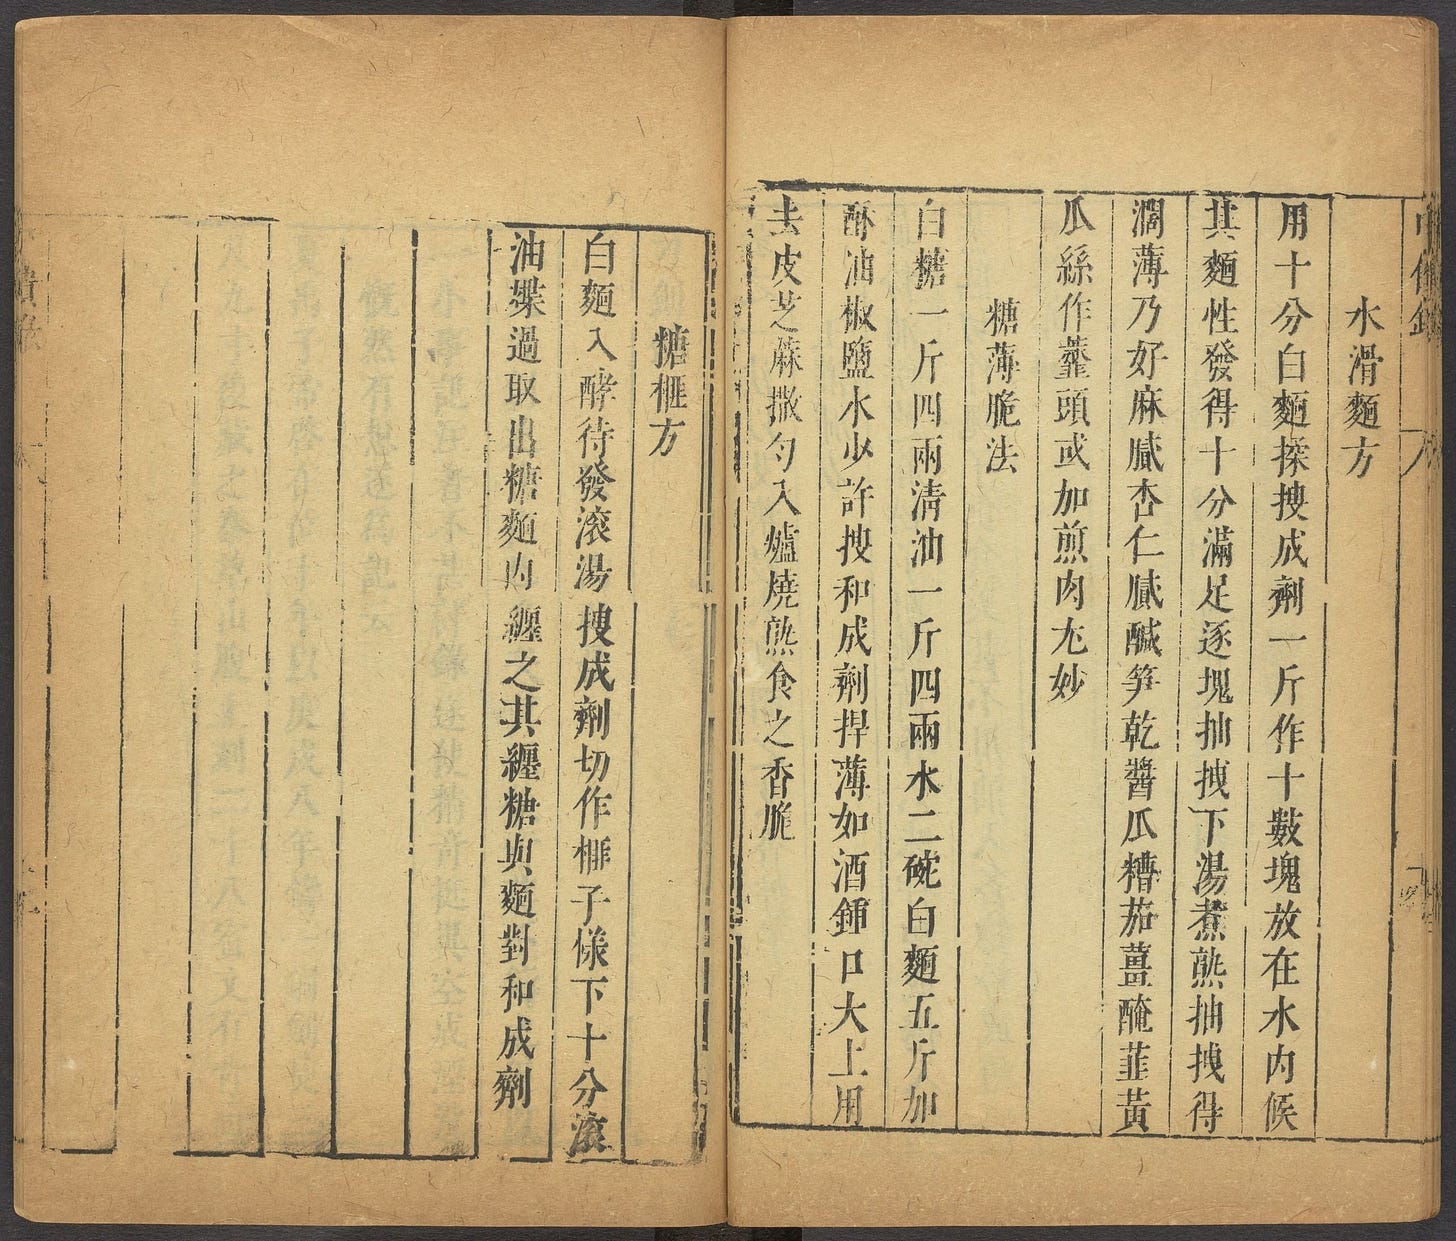 水滑麵方
用十分白麵揉搜成劑一斤作十數塊放在水內候
其麵性發得十分滿足逐塊抽拽下湯煮熟抽拽得
濶薄乃好麻膩杏仁膩醎笋乾醬瓜糟茄薑醃韮黃
瓜絲作虀頭或加煎肉尤妙
糖薄脆法
白糖一斤四兩清油一斤四兩水二碗白麵五斤加
酥油椒鹽水少許搜和成劑捍薄如酒鍾口大上用
去皮芝麻撒勻入爐燒熟食之香脆
糖榧方
白麵入酵待發滚湯搜成劑切作榧子樣下十分滚
油煠過取出糖麵內纏之其纏糖與麵對和成劑